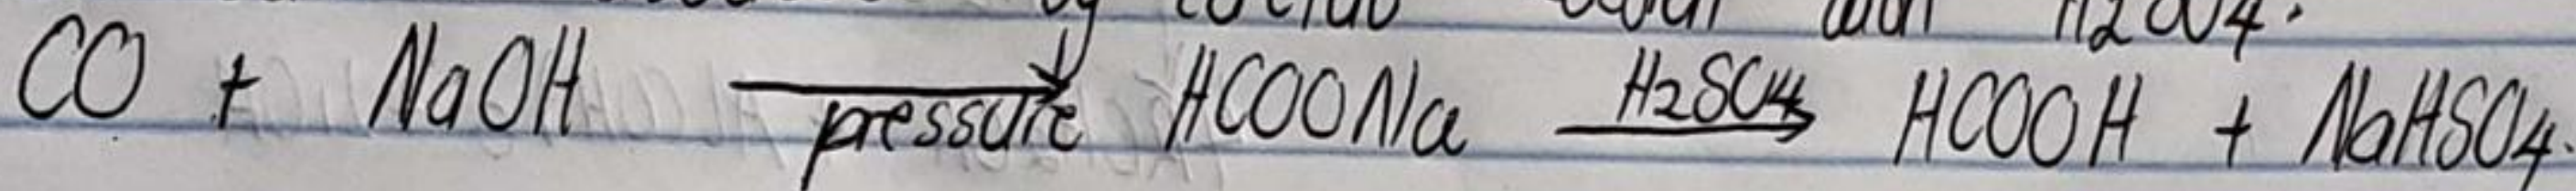 H2SO4.
CO + NaOH pressure HCOONa H2SO4 HCOOH + NaHSO4.